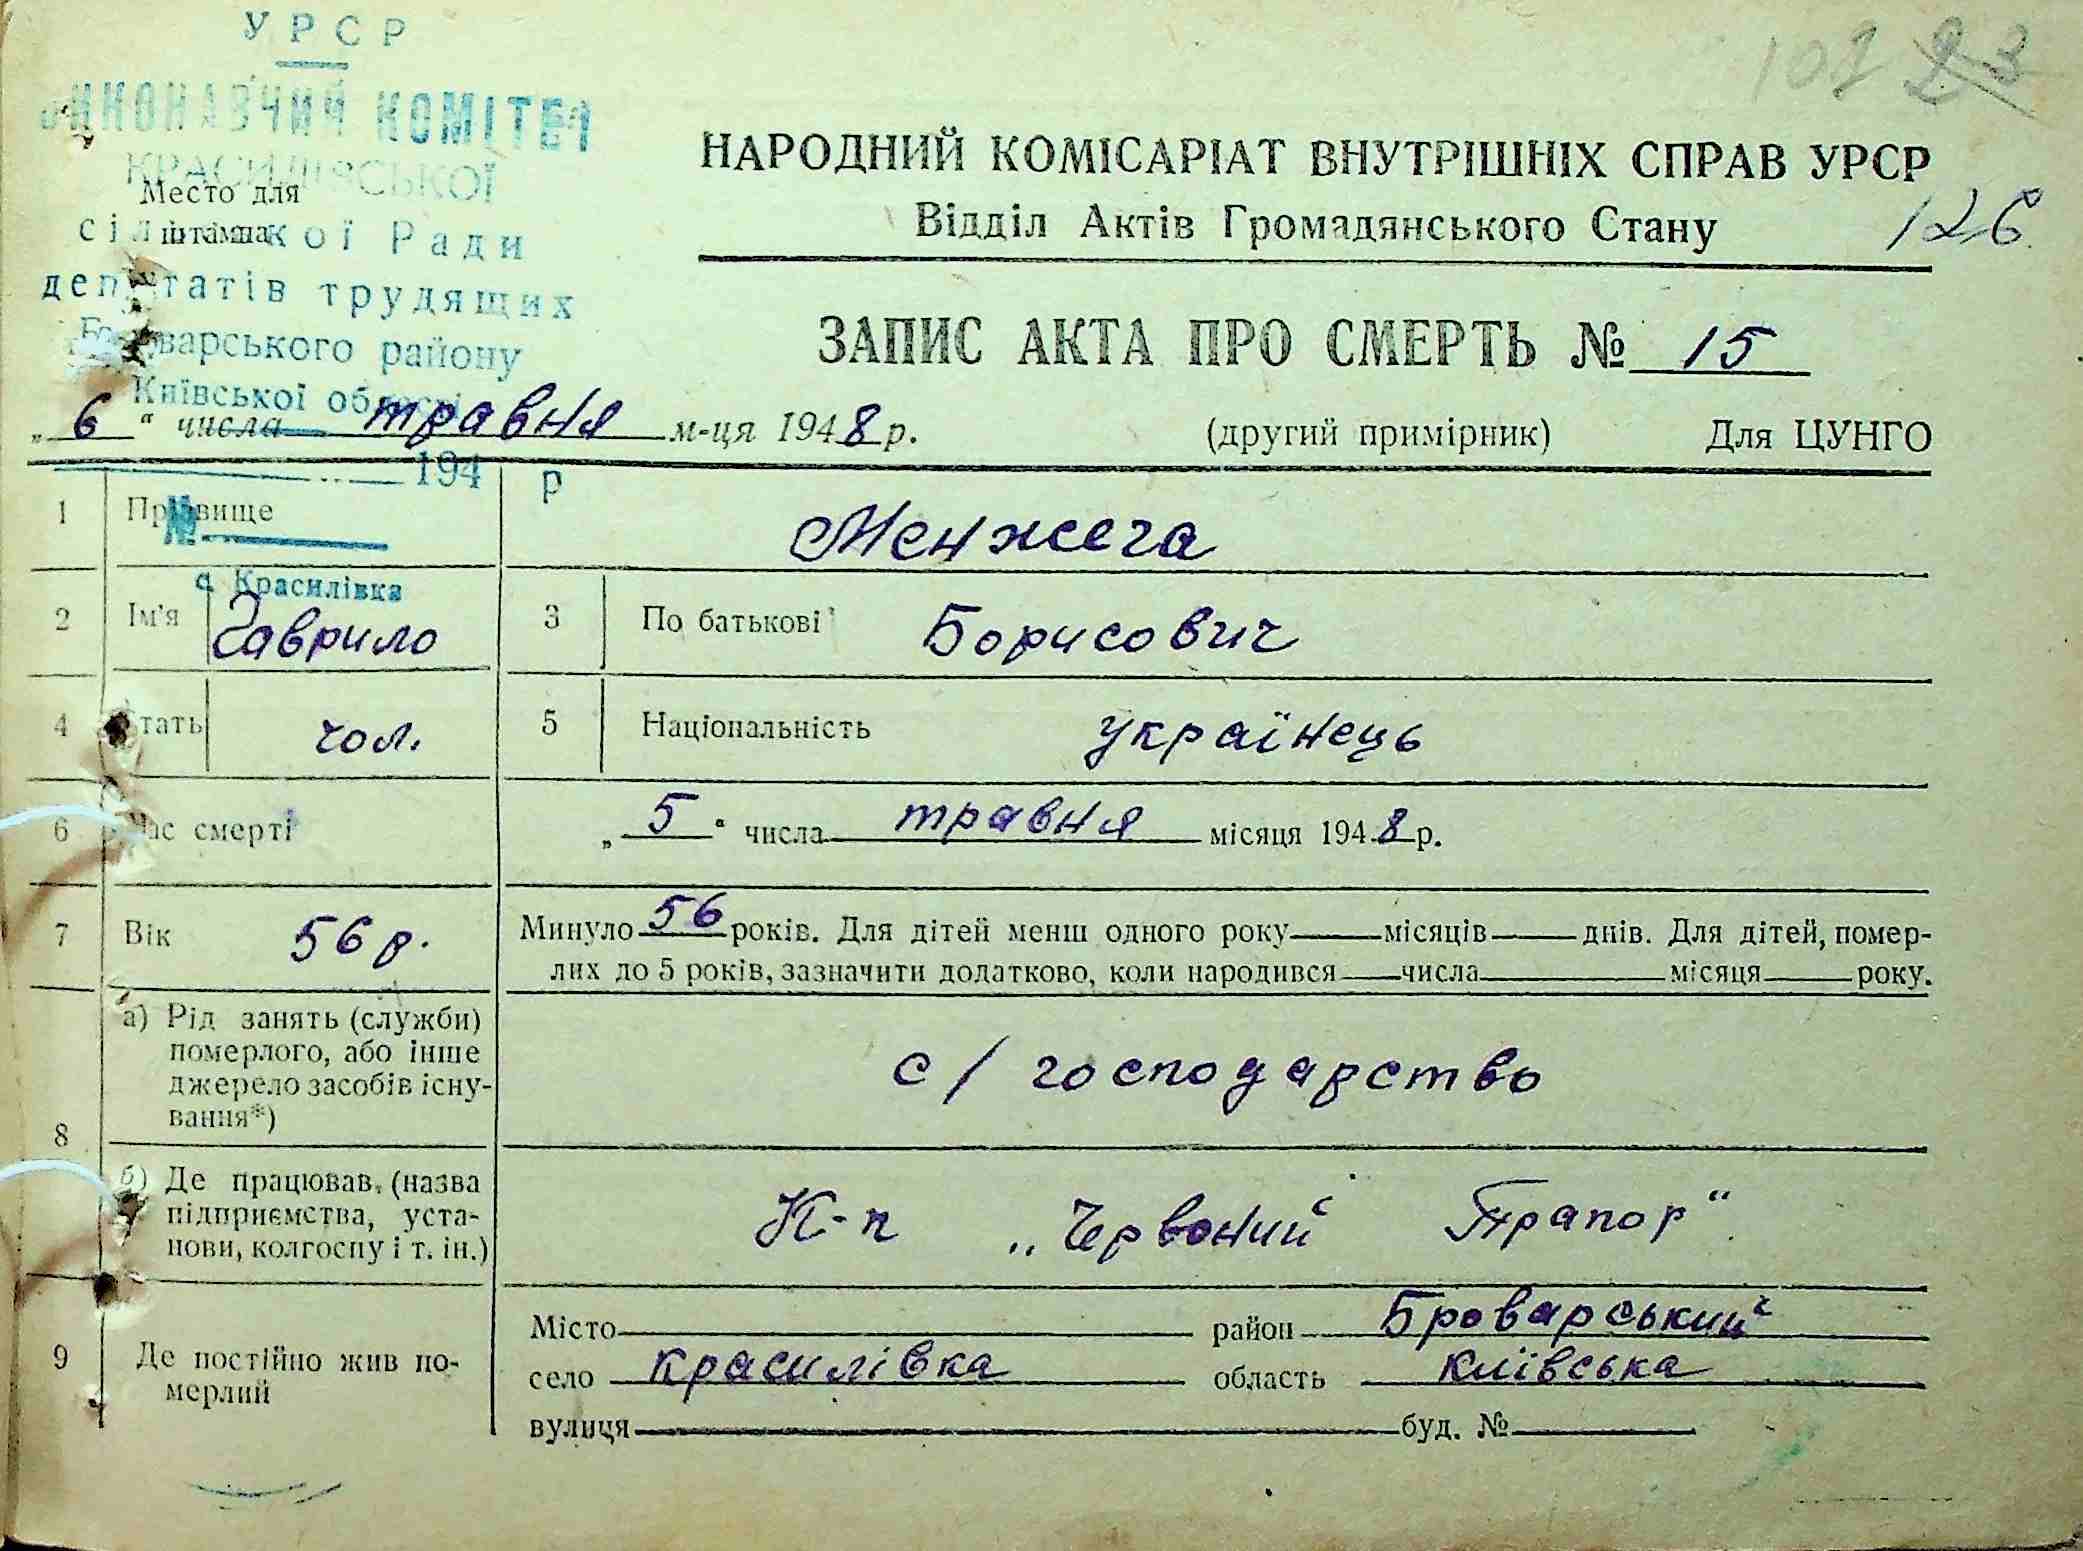 УРСР
ВИКОНАВЧИЙ КОМІТЕТ
КРАСИЛІВСЬКОЇ
Место для
штампа
сільської Ради
депутатів трудящих
Броварського району
Київської області
194 р
№
с. Красилівка
101 23
НАРОДНИЙ КОМІСАРІАТ ВНУТРІШНІХ СПРАВ УРСР
Відділ Актів Громадянського Стану
126
ЗАПИС АКТА ПРО СМЕРТЬ № 15
„6“ числа травня м-ця 1948 р. (другий примірник) Для ЦУНГО
1 Прізвище Менжега
2 Ім'я Гаврило 3 По батькові Борисович
4 Стать чол. 5 Національність українець
6 Час смерті „5“ числа травня місяця 1948 р.
7 Вік 56 р. Минуло 56 років. Для дітей менш одного року місяців днів. Для дітей, помер-
лих до 5 років, зазначити додатково, коли народився числа місяця року.
8 а) Рід занять (служби)
померлого, або інше
джерело засобів існу-
вання*)
с/господарство
б) Де працював (назва
підприємства, уста-
нови, колгоспу і т. ін.)
К-п „Червоний Трапор“
9 Де постійно жив по-
мерлий
Місто район Броварський
село красилівка область київська
вулиця буд. №